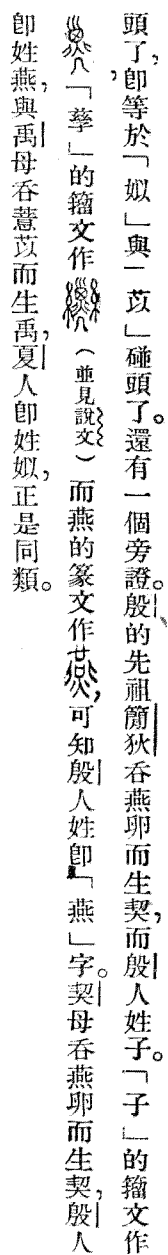 頭了,卽等於「姒」與「苡」碰頭了。還有一個旁證。殷的先祖簡狄吞燕卵而生契,而殷人姓子。「子」的籀文作
「孳」的籀文作(並見說文)而燕的篆文作,可知殷人姓卽「燕」字。契母吞燕卵而生契,殷人
卽姓燕,與禹母吞薏苡而生禹,夏人卽姓姒,正是同類。